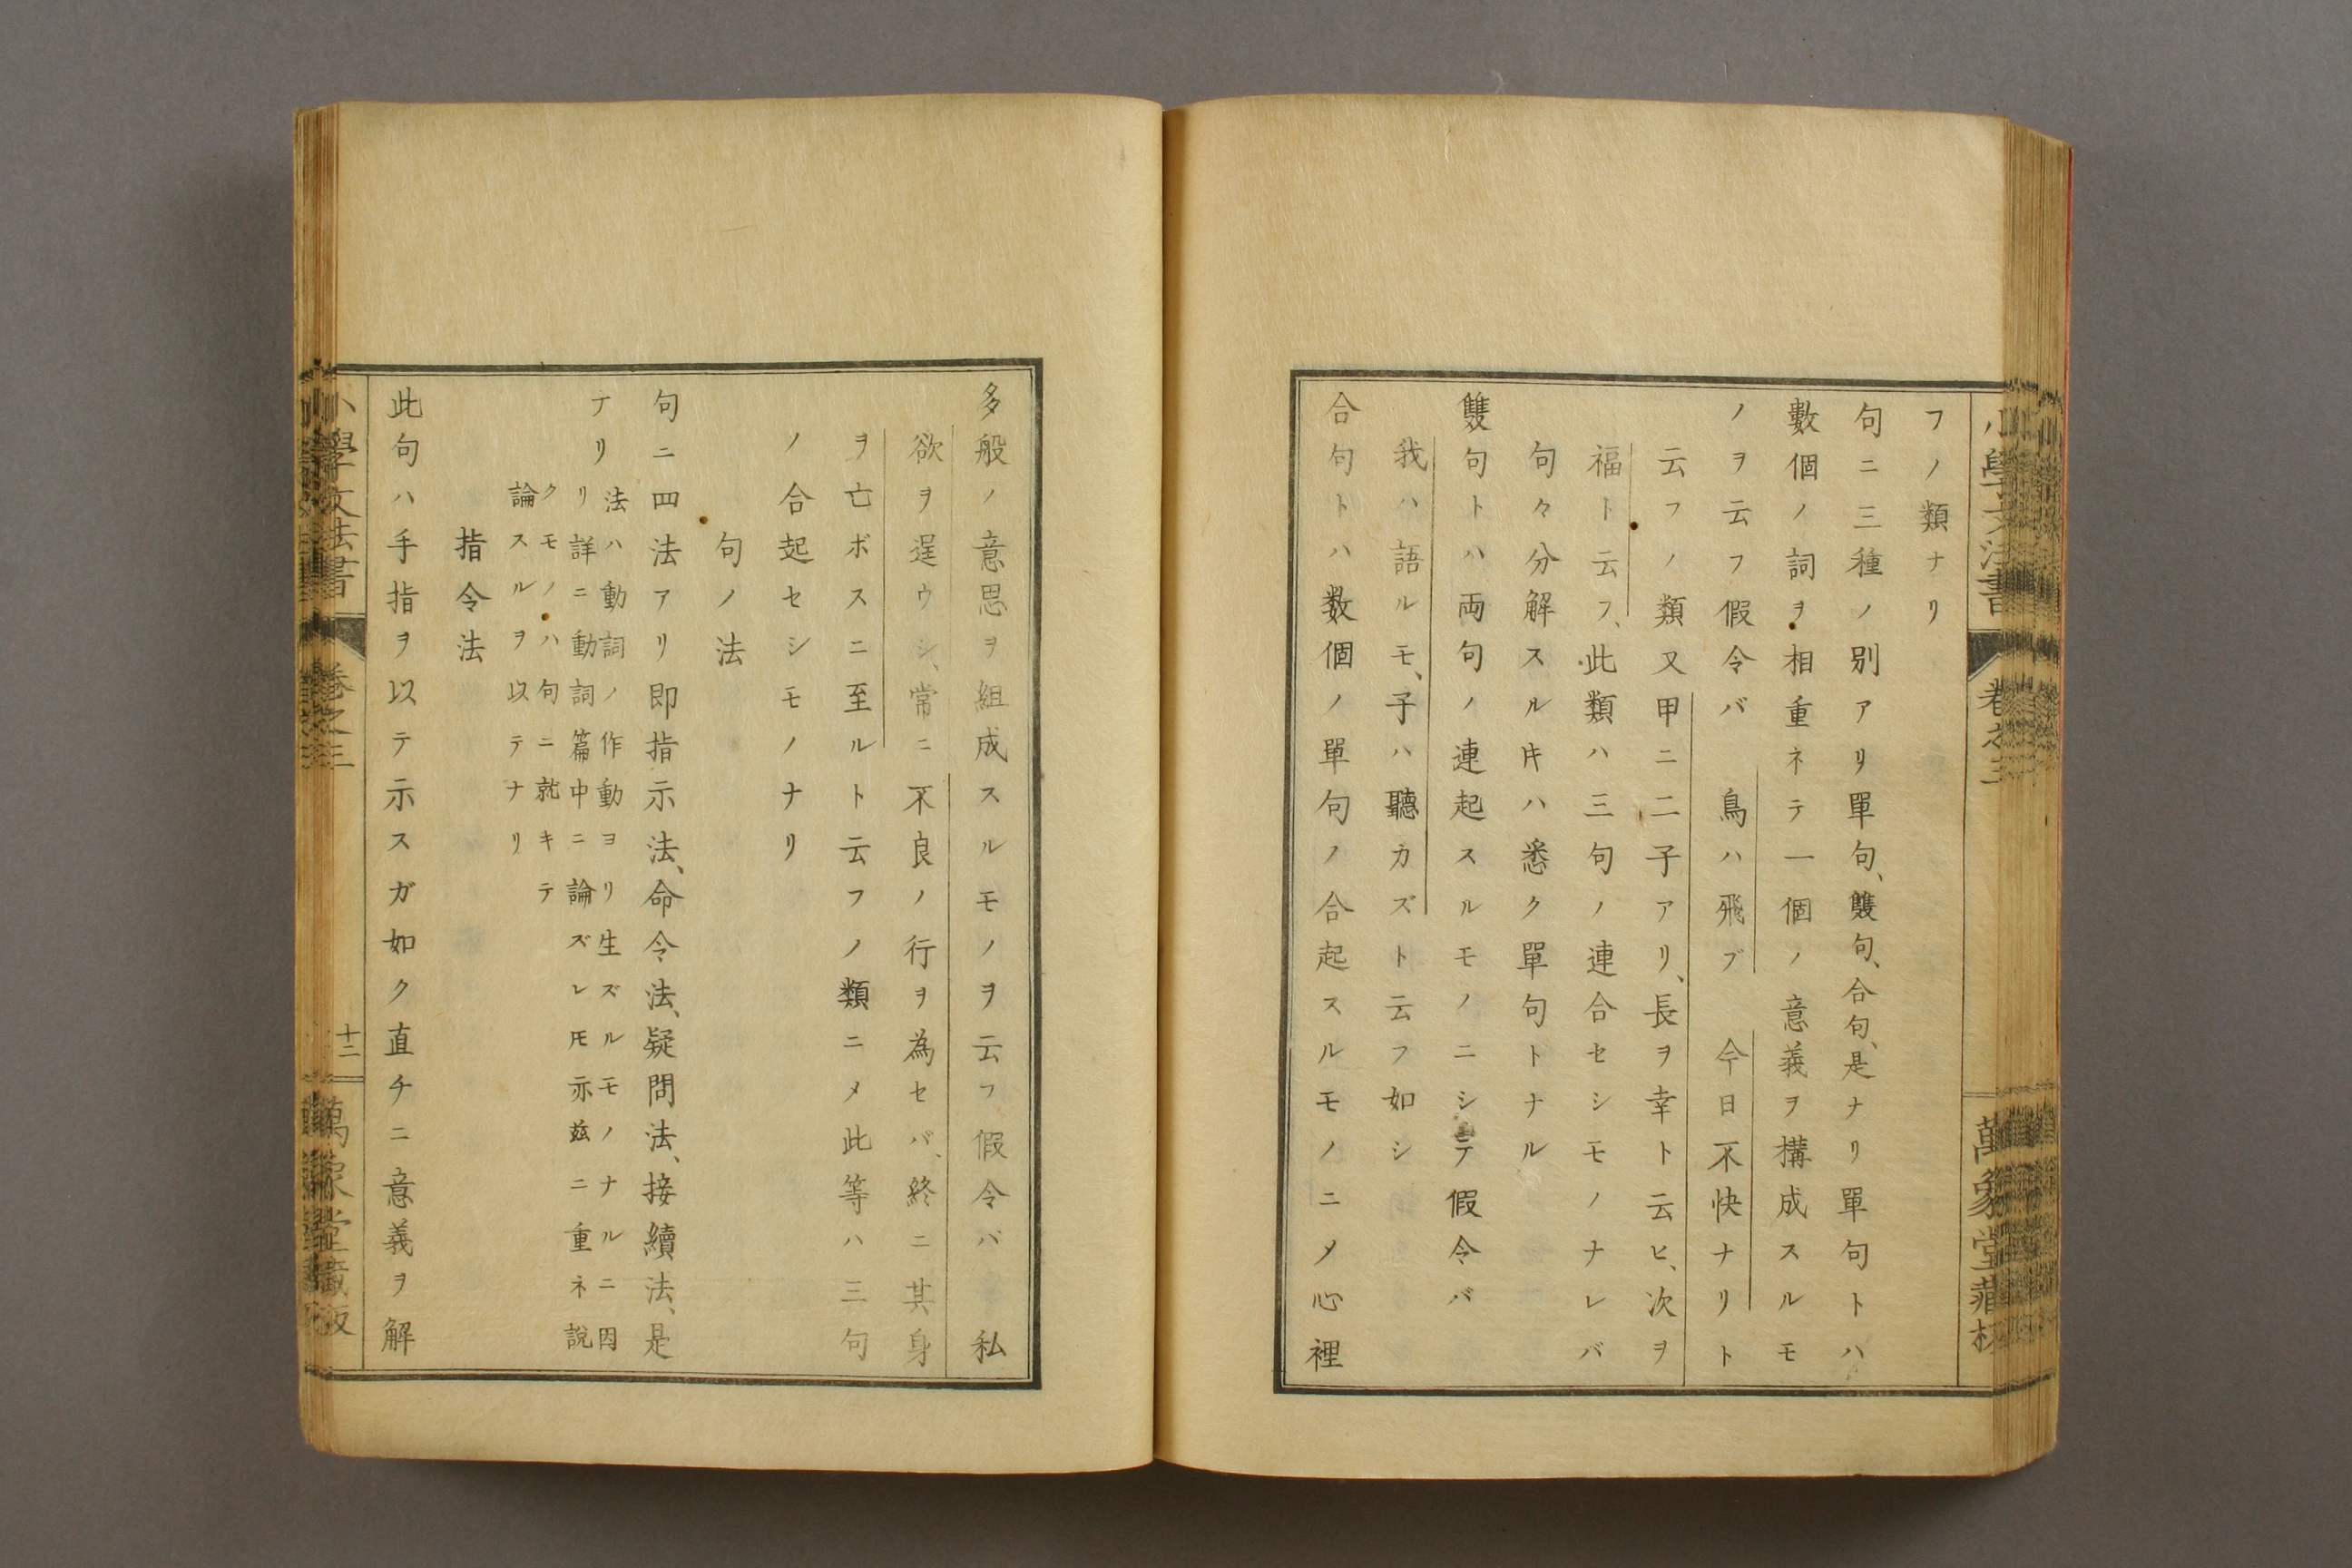 小學文法書 卷之三 萬象堂藏板
フノ類ナリ
句ニ三種ノ別アリ單句、雙句、合句、是ナリ單句トハ
數個ノ詞ヲ相重ネテ一個ノ意義ヲ構成スルモ
ノヲ云フ假令バ 鳥ハ飛ブ 今日不快ナリト
云フノ類又甲ニ二子アリ、長ヲ幸ト云ヒ、次ヲ
福ト云フ、此類ハ三句ノ連合セシモノナレバ
句々分解スル𪜈ハ悉ク單句トナル
雙句トハ両句ノ連起スルモノニシテ假令バ
我ハ語ルモ、子ハ聽カズト云フ如シ
合句トハ数個ノ單句ノ合起スルモノニメ心裡
多般ノ意思ヲ組成スルモノヲ云フ假令バ 私
欲ヲ逞ウシ、常ニ不良ノ行ヲ為セバ、終ニ其身
ヲ亡ボスニ至ルト云フノ類ニメ此等ハ三句
ノ合起セシモノナリ
句ノ法
句ニ四法アリ即指示法、命令法、疑問法、接續法、是
ナリ
法ハ動詞ノ作動ヨリ生ズルモノナルニ因
リ詳ニ動詞篇中ニ論ズレ𪜈亦茲ニ重ネ說
クモノハ句ニ就キテ
論スルヲ以テナリ
指令法
此句ハ手指ヲ以テ示スガ如ク直チニ意義ヲ解
小學文法書 卷之三 十二 萬象堂藏板